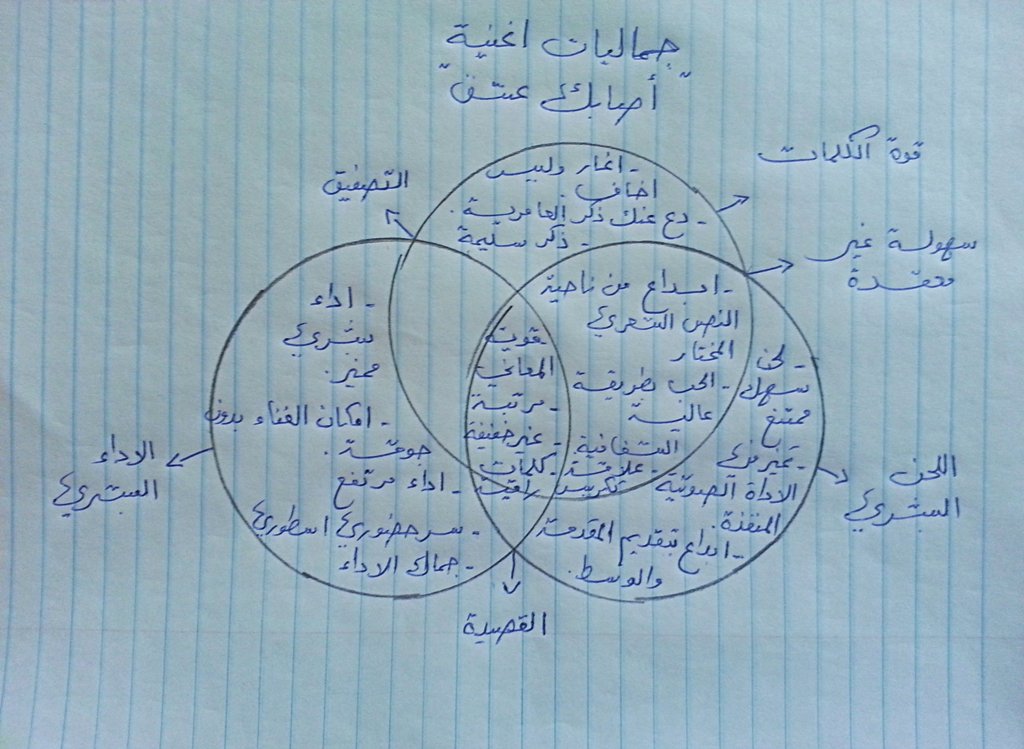 جماليات اغنية
"أصابك عشق"
قوة الكلمات
- اغار وليس
اخاف.
- دع عنك ذكر العامرية.
- ذكر سليمة
التصفيق
سهولة غير
معقدة
- ابداع من ناحية
النص الشعري
المختار
- الحب بطريقة
عالية
الشفافية
- علاقة
- قوية
المعاني
- مرتبة
- غير خفيفة
- كلمات
راقية
- اداء
بشري
مميز.
- امكان الغناء بدون
جوقة.
- اداء مرتفع
- سر حضوري اسطوري
- جمال الاداء
الاداء
البشري
- لحن
سهل
ممتنع
الاداة الصوتية
المنفذة.
- ابداع بتقديم المقدمة
والوسط.
اللحن
البشري
القصيدة